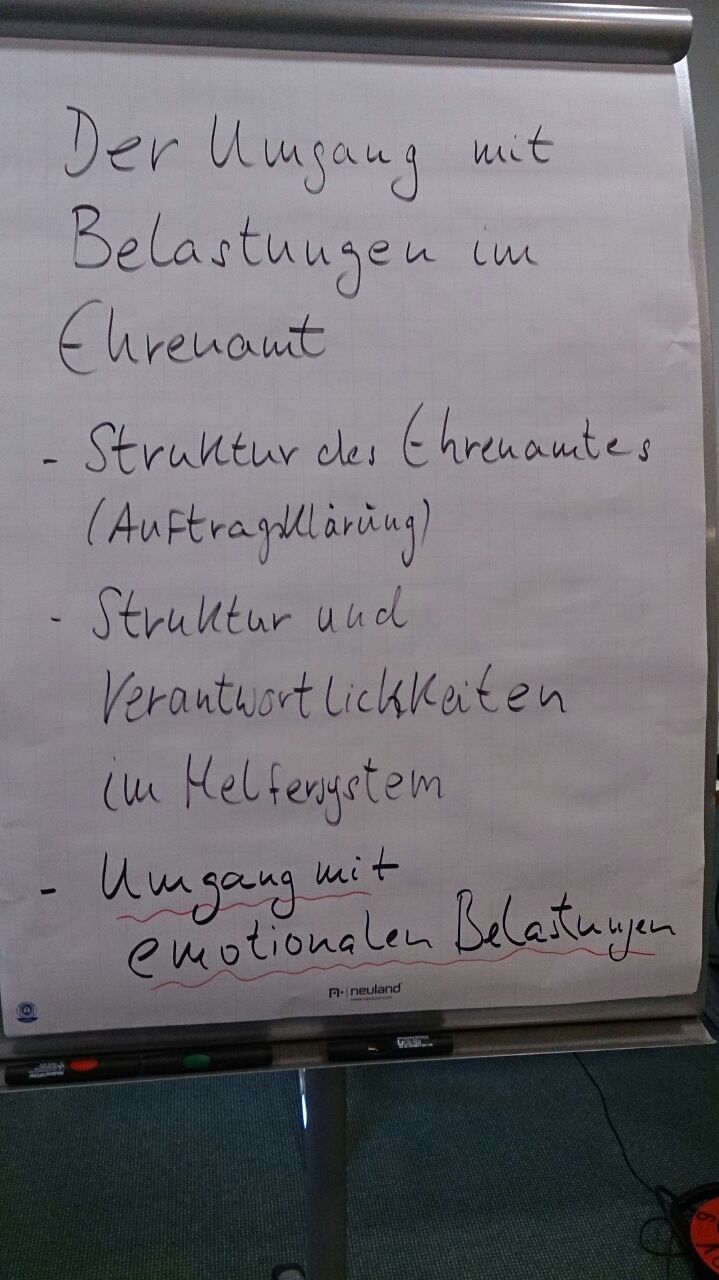 Der Umgang mit
Belastungen im
Ehrenamt
- Struktur des Ehrenamtes
(Auftragsklärung)
- Struktur und
Verantwortlichkeiten
im Helfersystem
- Umgang mit
emotionalen Belastungen
neuland